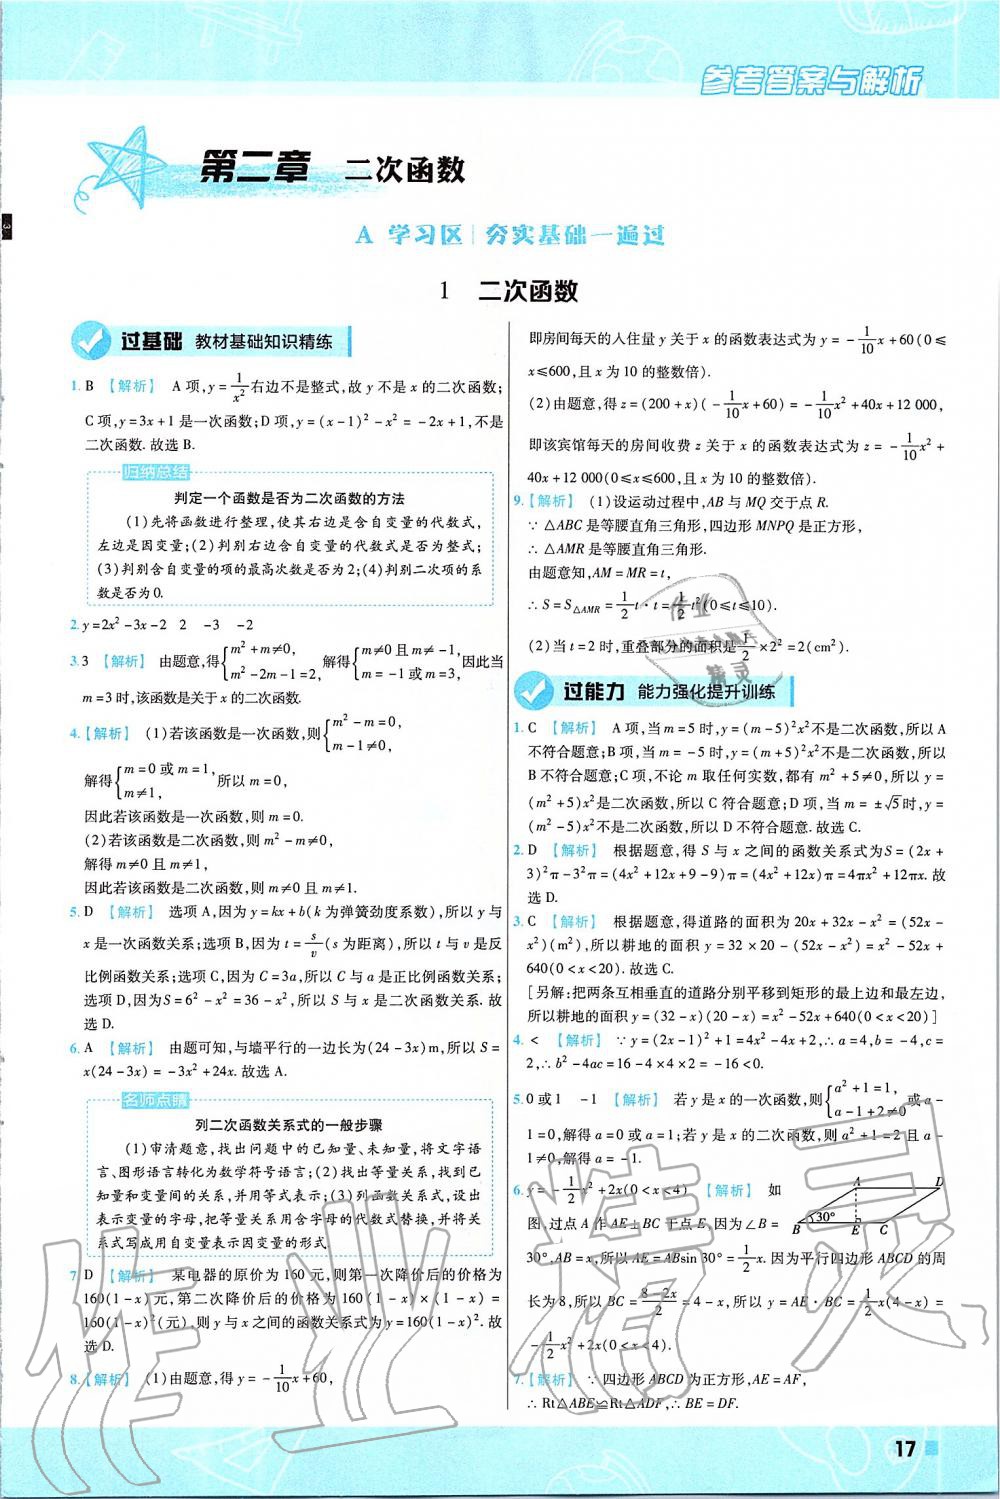 参考答案与解析
第二章 二次函数
A 学习区 | 夯实基础一遍过
1 二次函数
过基础 教材基础知识精练
1. B 【解析】 A项,y=1/x²右边不是整式,故y不是x的二次函数;
C项,y=3x+1是一次函数;D项,y=(x-1)²-x²=-2x+1,不是
二次函数.故选B.
归纳总结
判定一个函数是否为二次函数的方法
(1)先将函数进行整理,使其右边是含自变量的代数式,
左边是因变量;(2)判别右边含自变量的代数式是否为整式;
(3)判别含自变量的项的最高次数是否为2;(4)判别二次项的系
数是否为0.
2. y=2x²-3x-2 2 -3 -2
3. 3 【解析】 由题意,得{m²+m≠0, m²-2m-1=2, 解得{m≠0且m≠-1, m=-1或m=3, 因此当
m=3时,该函数是关于x的二次函数.
4.【解析】 (1)若该函数是一次函数,则{m²-m=0, m-1≠0,
解得{m=0或m=1, m≠1, 所以m=0.
因此若该函数是一次函数,则m=0.
(2)若该函数是二次函数,则m²-m≠0,
解得m≠0且m≠1,
因此若该函数是二次函数,则m≠0且m≠1.
5. D 【解析】 选项A,因为y=kx+b(k为弹簧劲度系数),所以y与
x是一次函数关系;选项B,因为t=s/v(s为距离),所以t与v是反
比例函数关系;选项C,因为C=3a,所以C与a是正比例函数关系;
选项D,因为S=6²-x²=36-x²,所以S与x是二次函数关系.故
选D.
6. A 【解析】 由题可知,与墙平行的一边长为(24-3x)m,所以S=
x(24-3x)=-3x²+24x.故选A.
名师点睛
列二次函数关系式的一般步骤
(1)审清题意,找出问题中的已知量和未知量,将文字语
言、图形语言转化为数学符号语言;(2)找出等量关系,找到已
知量和变量间的关系,并用等式表示;(3)列函数关系式,设出
表示变量的字母,把等量关系用含字母的代数式替换,并将关
系式写成用自变量表示因变量的形式.
7. D 【解析】 某电器的原价为160元,则第一次降价后的价格为
160(1-x)元,第二次降价后的价格为160(1-x)×(1-x)=
160(1-x)²(元),则y与x之间的函数关系式为y=160(1-x)².故
选D.
8.【解析】 (1)由题意,得y=-1/10x+60,
即房间每天的入住量y关于x的函数表达式为y=-1/10x+60(0≤
x≤600,且x为10的整数倍).
(2)由题意,得z=(200+x)(-1/10x+60)=-1/10x²+40x+12 000,
即该宾馆每天的房间收费z关于x的函数表达式为z=-1/10x²+
40x+12 000(0≤x≤600,且x为10的整数倍).
9.【解析】 (1)设运动过程中,AB与MQ交于点R.
∵△ABC是等腰直角三角形,四边形MNPQ是正方形,
∴△AMR是等腰直角三角形.
由题意知,AM=MR=t,
∴S=S△AMR=1/2t·t=1/2t²(0≤t≤10).
(2)当t=2时,重叠部分的面积是1/2×2²=2(cm²).
过能力 能力强化提升训练
1. C 【解析】 A项,当m=5时,y=(m-5)²x²不是二次函数,所以A
不符合题意;B项,当m=-5时,y=(m+5)²x²不是二次函数,所以
B不符合题意;C项,不论m取任何实数,都有m²+5≠0,所以y=
(m²+5)x²是二次函数,所以C符合题意;D项,当m=±√5时,y=
(m²-5)x²不是二次函数,所以D不符合题意.故选C.
2. D 【解析】 根据题意,得S与x之间的函数关系式为S=(2x+
3)²π-3²π=(4x²+12x+9-9)π=(4x²+12x)π=4πx²+12πx.故
选D.
3. C 【解析】 根据题意,得道路的面积为20x+32x-x²=(52x-
x²)(m²),所以耕地的面积y=32×20-(52x-x²)=x²-52x+
640(0<x<20).故选C.
[另解:把两条互相垂直的道路分别平移到矩形的最上边和最左边,
所以耕地的面积y=(32-x)(20-x)=x²-52x+640(0<x<20)]
4. < 【解析】 ∵y=(2x-1)²+1=4x²-4x+2,∴a=4,b=-4,c=
2,∴b²-4ac=16-4×4×2=-16<0.
5. 0或1 -1 【解析】 若y是x的一次函数,则{a²+1=1, a-1+2≠0 或a-
1=0,解得a=0或a=1;若y是x的二次函数,则a²+1=2且a-
1≠0,解得a=-1.
6. y=-1/2x²+2x(0<x<4) 【解析】 如
图,过点A作AE⊥BC于点E,因为∠B=
30°,AB=x,所以AE=ABsin 30°=1/2x.因为平行四边形ABCD的周
长为8,所以BC=(8-2x)/2=4-x,所以y=AE·BC=1/2x(4-x)=
-1/2x²+2x(0<x<4).
A D
B 30° E C
7.【解析】 ∵四边形ABCD为正方形,AE=AF,
∴Rt△ABE≌Rt△ADF,∴BE=DF.
17
作业精灵
作业
精灵